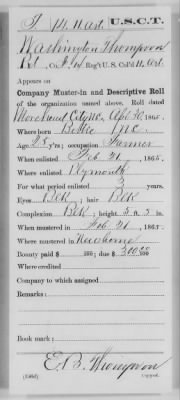 T 14 H. Art. U.S.C.T.
Washington Thompson
Pvt, Co. , 14 Reg't U.S. Col'd H. Art.
Appears on
Company Muster-in and Descriptive Roll
of the organization named above. Roll dated
Morehead City NC, 186 .
Where born N.C.
Age 23 y'rs; occupation Farmer
When enlisted Feb 21, 1865.
Where enlisted Plymouth
For what period enlisted 3 years.
Eyes Blk; hair Blk
Complexion Blk; height 5 ft. 5 in.
When mustered in Feb 21, 1865.
Where mustered in Newbern
Bounty paid $ 100; due $ 300 00/100
Where credited
Company to which assigned
Remarks:
Book mark:
E. B. Thompson
Copyist.